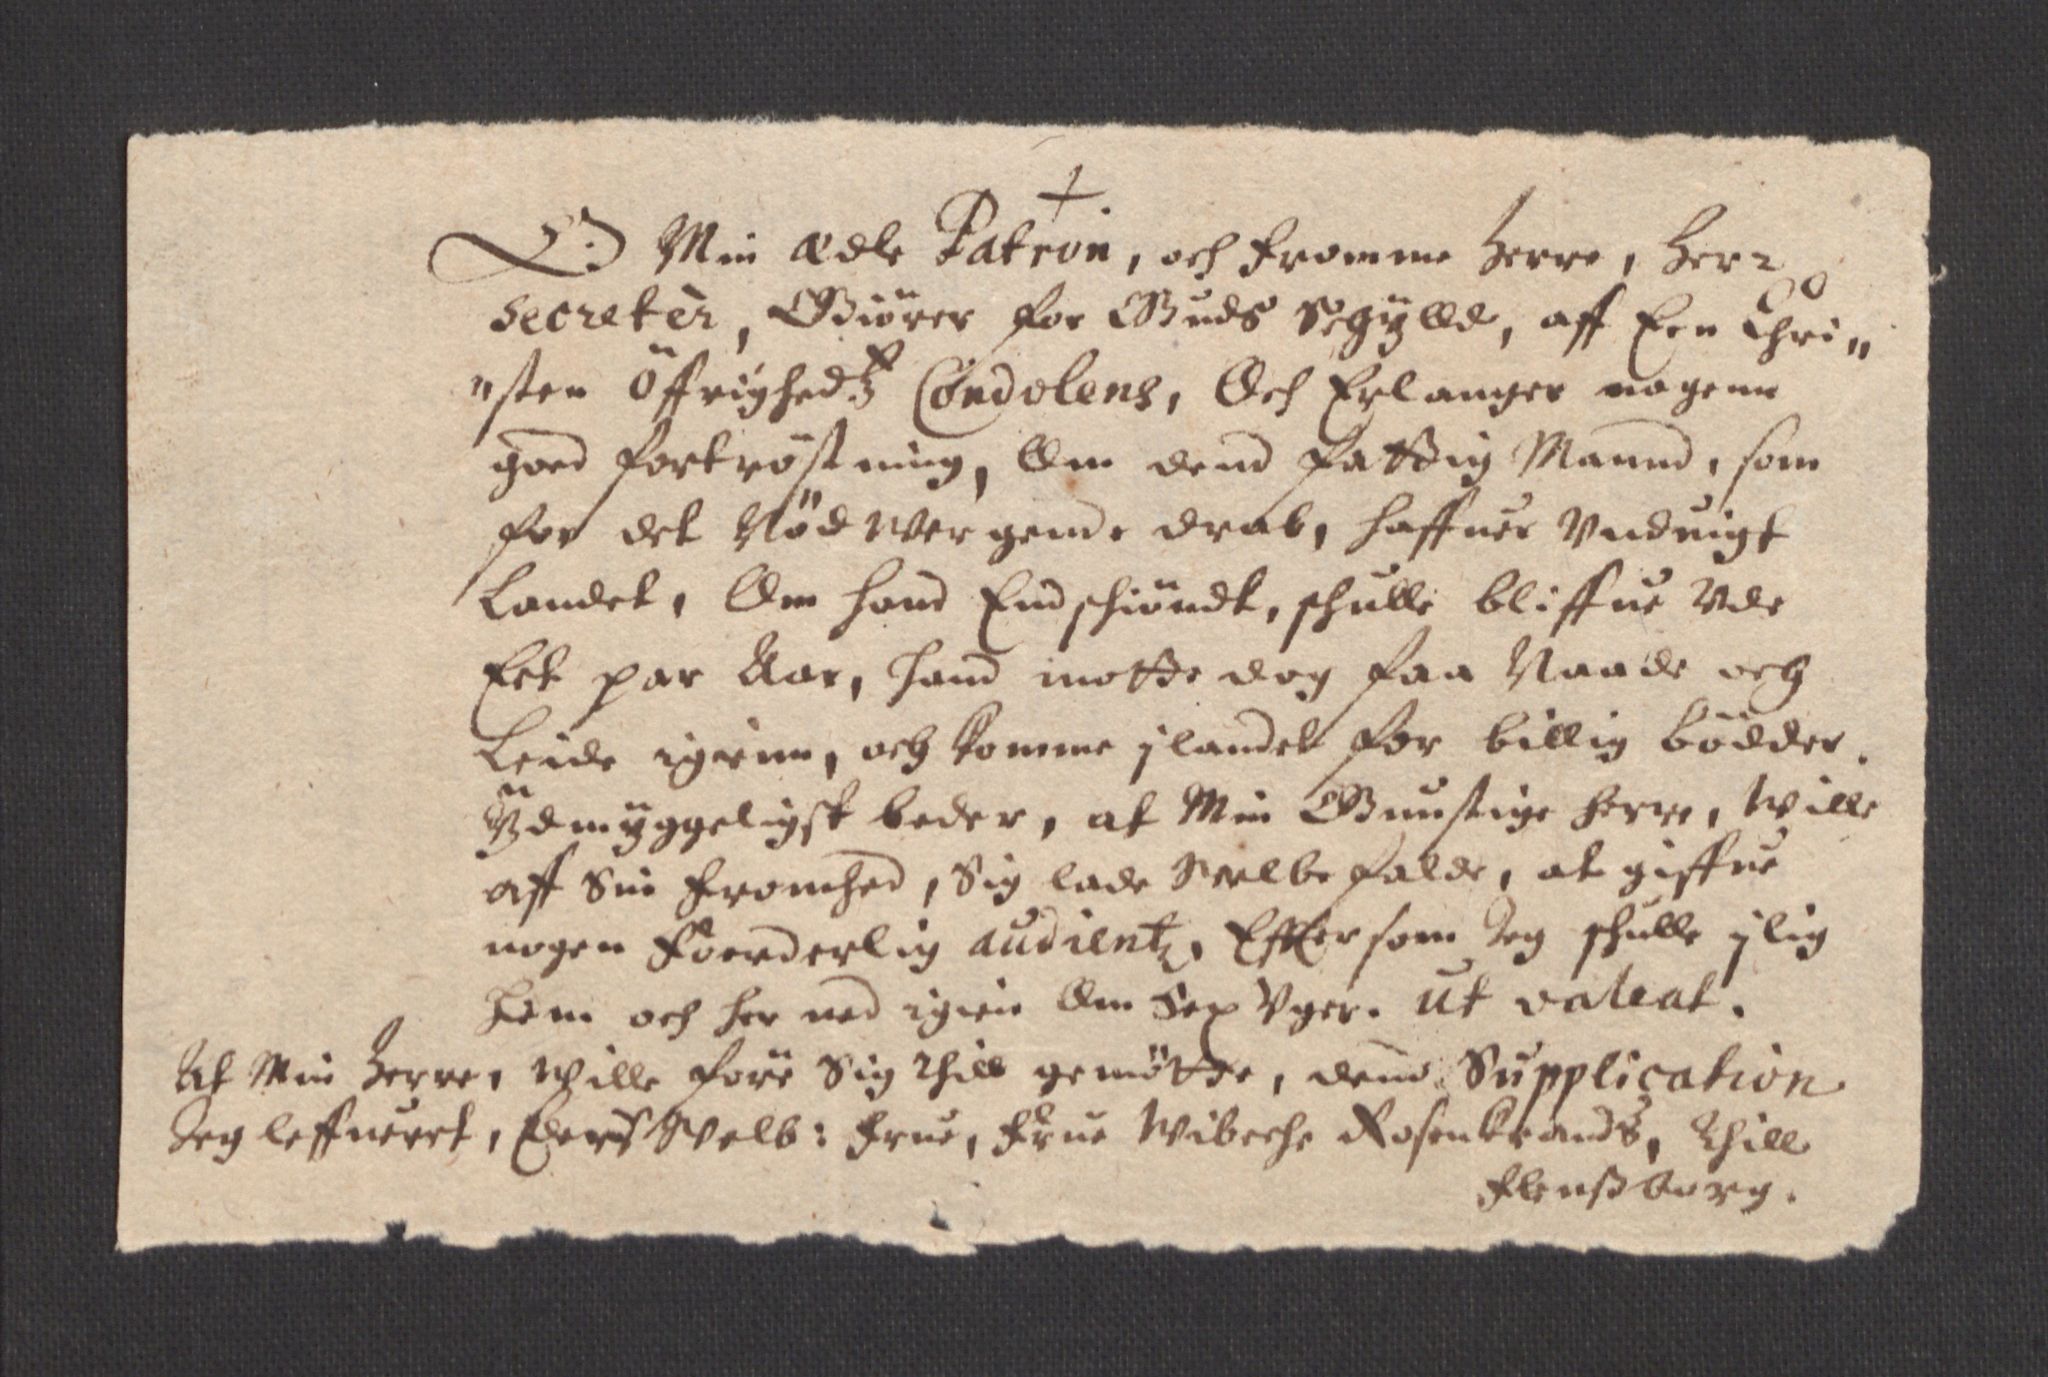 O. Min ædle Patron, och fromme Herre, Herr
Secretèr, Giörer for Guds Schÿlld, aff Een Chri„
„sten Öffrighedtz Condolens, Och Erlanger nogenn
goed fortröstning, Om dend fattig Mannd, som
for det Nödwergende drab, haffuer Vnduigt
Landet, Om hand End schiöndt, schulle bliffue Vde
Eet par Aar, hand motte dog faa Naade och
Leide igienn, och komme jlandet for billig bödder.
Ÿdmÿggeligst beder, at Min Gunstige herre, wille
aff Sin fromhed, Sig lade Velbefalde, at giffue
nogen Foerderlig audientz, Effter som Jeg schulle jlig
Hem och her ned igien Om Sex Vger. Ut valeat.
At Min Herre, wille före Sig thill gemötte, dend Supplication
Jeg leffuerte, Ders Velb: Frue, Frue Wibeche Rosenkrandtz, thill
Flensborg.